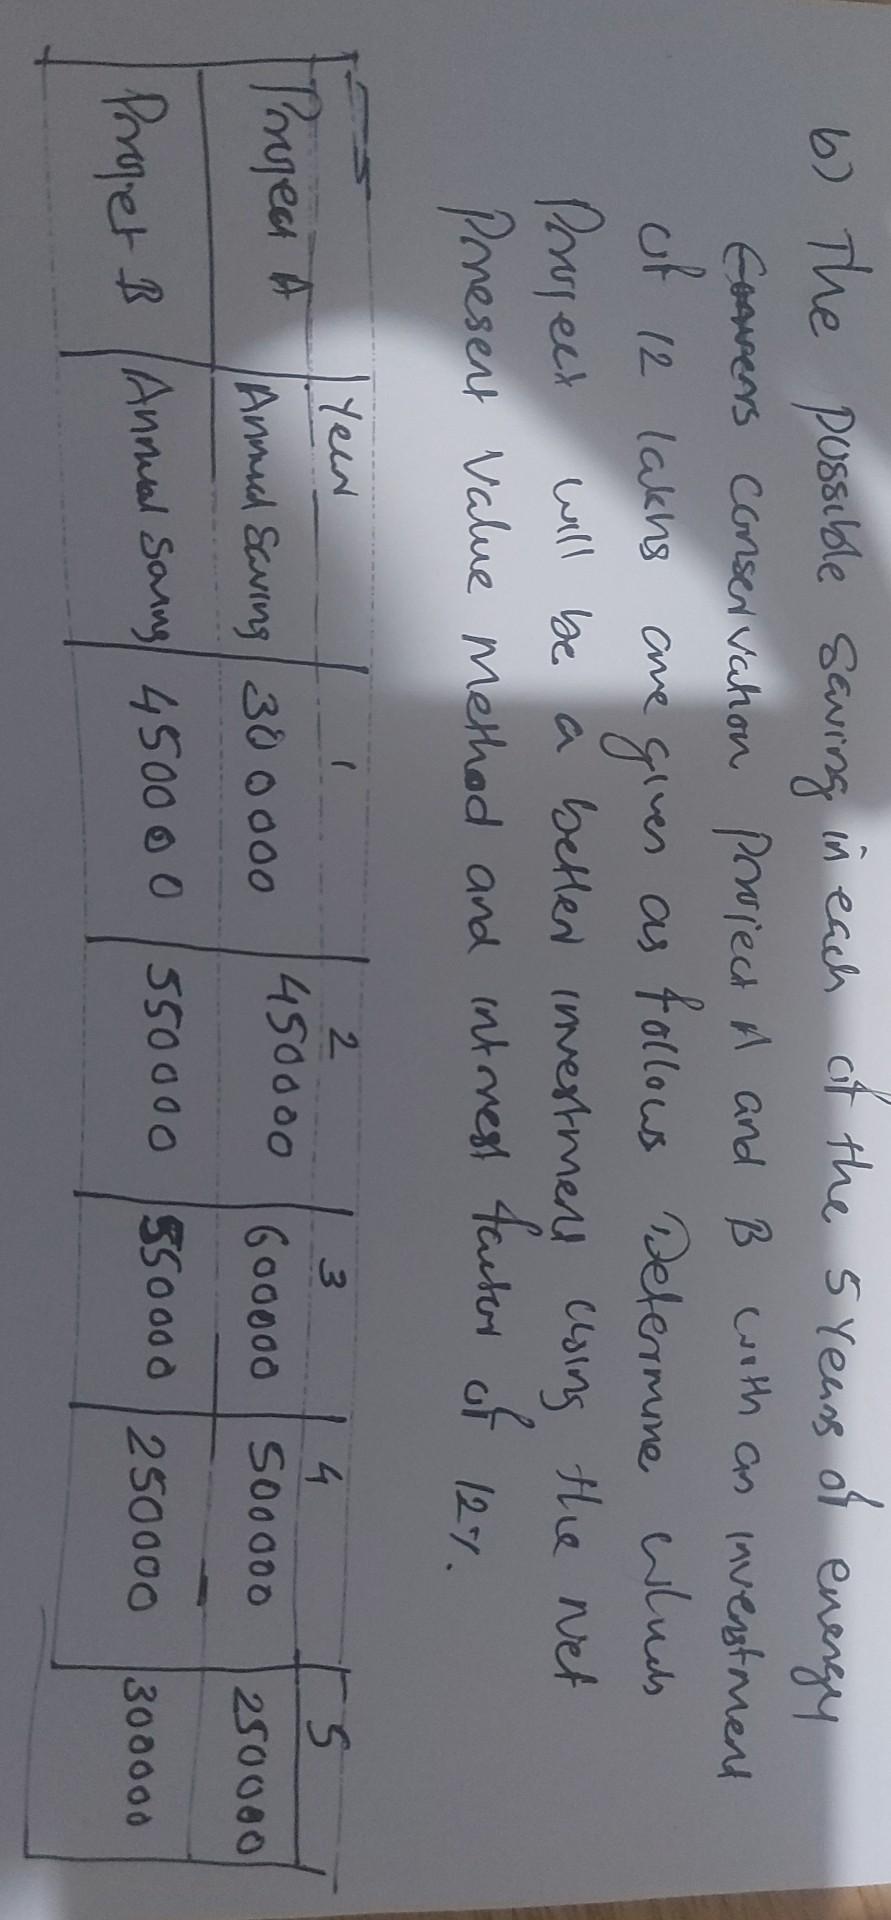 b) The possible saving in each of the 5 Years of energy
conservation project A and B with an investment
of 12 lakhs are given as follows Determine which
Project will be a better investment using the net
Present Value Method and intrest factor of 12%.
Year 1 2 3 4 5
Project A Annual Saving 300000 450000 600000 500000 250000
Project B Annual Saving 450000 550000 550000 250000 300000